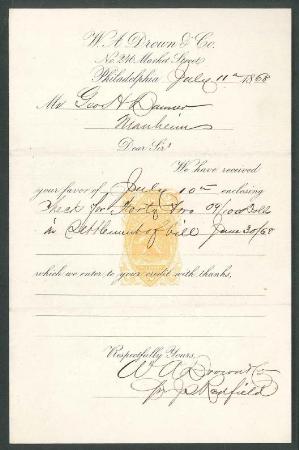 W. A. Drown & Co.
No. 246 Market Street
Philadelphia July 11th 1868
Mr Geo H Danner
Manheim
Dear Sir:
We have received
your favor of July 10th enclosing
Check for Forty Two 09/100 Dolls
in Settlement of bill June 30/68
which we enter to your credit with thanks.
Respectfully Yours,
W A Drown & Co
pr J S Redfield